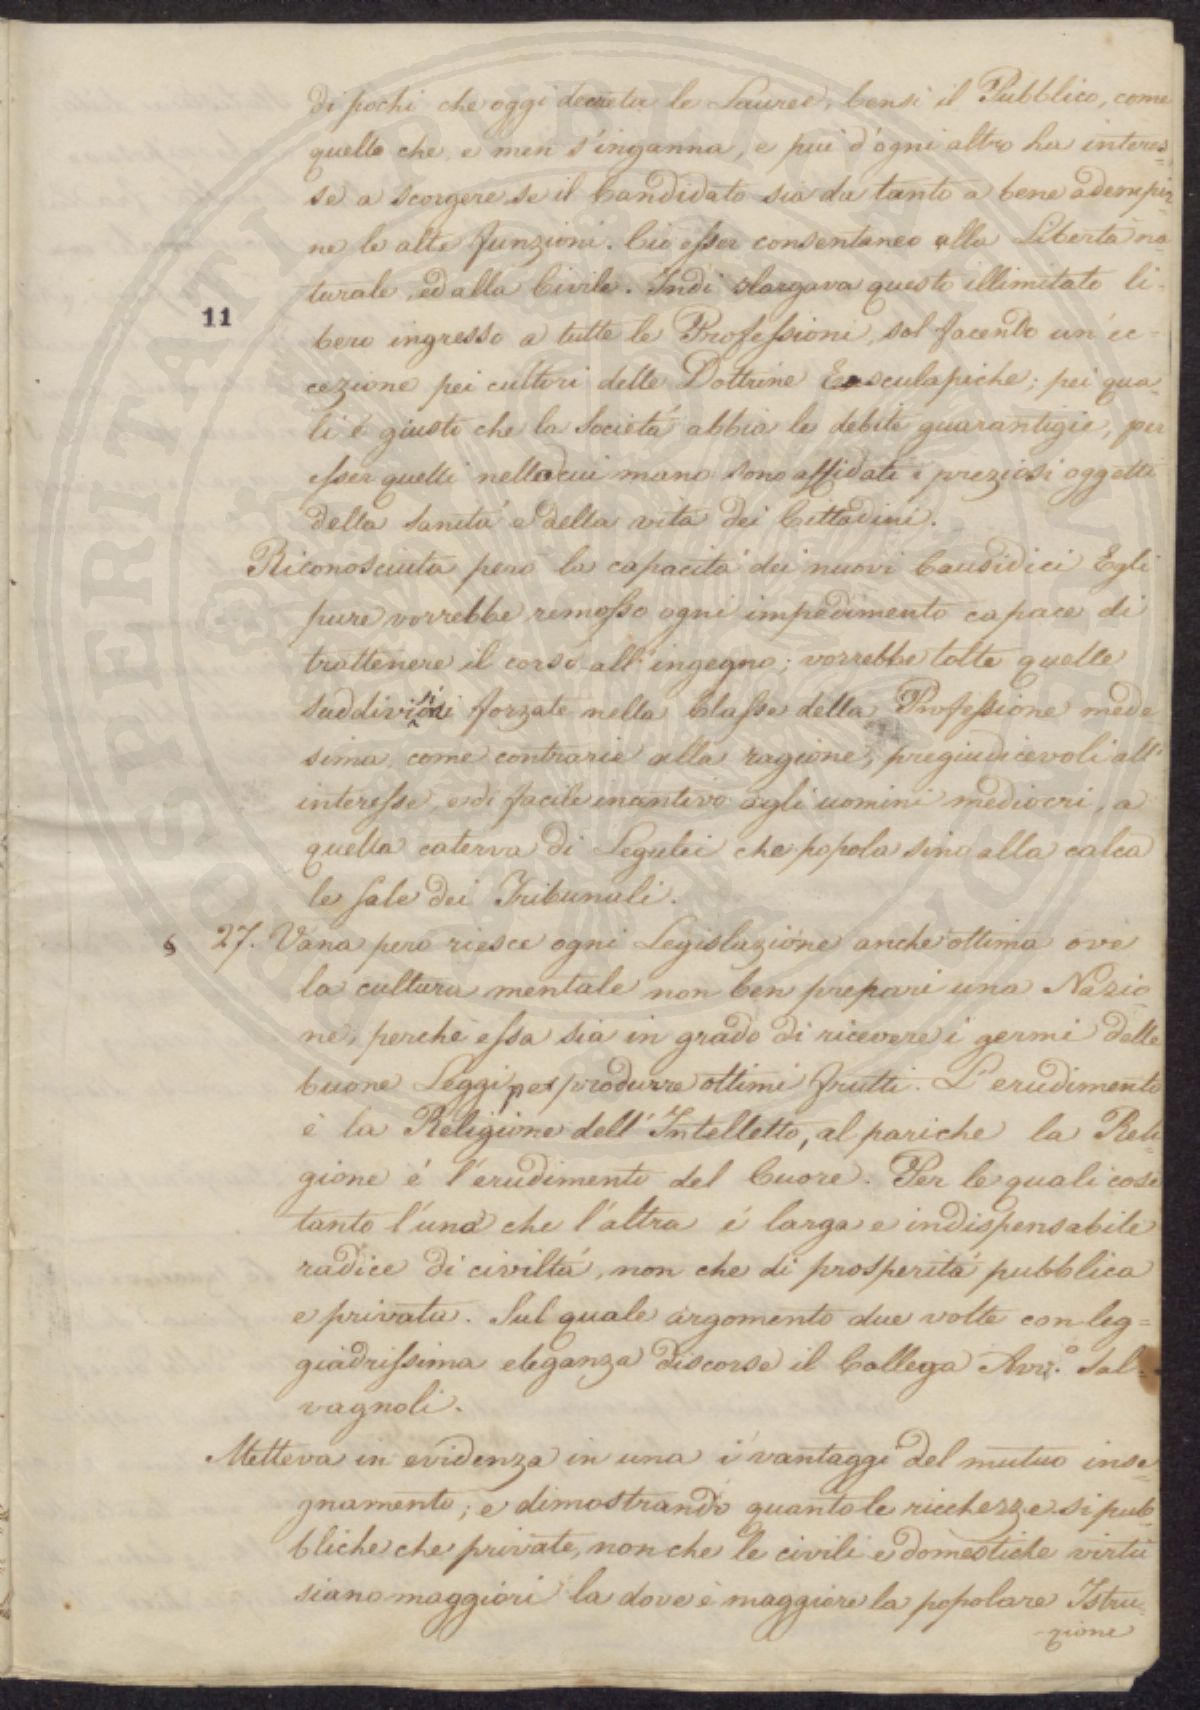 di pochi che oggi decreta le Lauree, bensi il Pubblico, come
quello che, e men s'inganna, e piú d'ogni altro ha interes=
se a scorgere se il Candidato sia da tanto a bene adempir
ne le alte funzioni. Ció esser consentaneo alla Libertá na
turale, ed alla Civile. Indi slargava questo illimitato li=
11
bero ingresso a tutte le Professioni, sol facendo un'ec=
cezione pei cultori delle Dottrine Esculapiche; pei qua=
li é giusto che la Societá abbia le debite guarantigie, per
esser quelli nella cui mano sono affidati i preziosi oggetti
della sanitá e della vita dei Cittadini.
Riconosciuta peró la capacitá dei nuovi Causidici Egli
pure vorrebbe remosso ogni impedimento capace di
trattenere il corso all'ingegno; vorrebbe tolte quelle
suddivisioni forzate nella Classe della Professione mede
sima, come contrarie alla ragione, pregiudicevoli all'
interesse, e di facile incentivo agli uomini mediocri, a
quella caterva di Legulei che popola sino alla calca
le sale dei Tribunali.
§ 27. Vana pero riesce ogni Legislazione anche ottima ove
la cultura mentale non ben prepari una Nazio=
ne, perche essa sia in grado di ricevere i germi delle
buone Leggi per produrre ottimi frutti. L'erudimento
è la Religione dell'Intelletto, al pari che la Reli=
gione é l'erudimento del Cuore. Per le quali cose
tanto l'una che l'altra é larga e indispensabile
radice di civiltá, non che di prosperitá pubblica
e privata. Sul quale argomento due volte con leg=
giadrissima eleganza discorse il Collega Avv.º Sal=
vagnoli.
Metteva in evidenza in una i vantaggi del mutuo inse=
gnamento; e dimostrando quanto le ricchezze si pub=
bliche che private, non che le civili e domestiche virtú
siano maggiori la dove é maggiore la popolare Istru=
=zione
PROSPERITATI PUBLICAE AUGENDAE